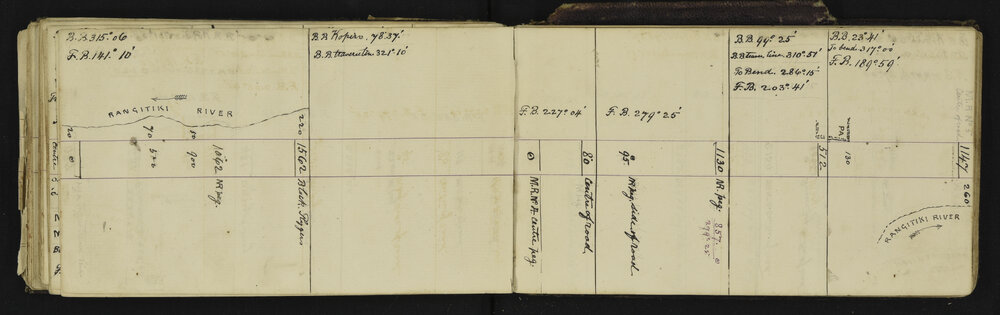 B.B 315° 06
F.B. 141° 10'
RANGITIKI RIVER
20
0
70
50
900
1042 NR peg.
220
1562 Black Piggers
B.B Kopiro. 78°37'
B.B. traverse line 321° 10'
F.B. 227° 04'
0 M.R. No A centre peg.
80 Centre of road.
F.B. 279° 25'
95. NR peg side of road
1130 NR. peg.
857
279° 25'
B.B. 99° 25'
B.B trav. line. 310° 51'
To Bend. 286° 15'
F.B. 203° 41'
512
B.B. 23° 41'
To bend. 317° 00'
F.B. 189° 59'
PA
130
1147
260
RANGITIKI RIVER